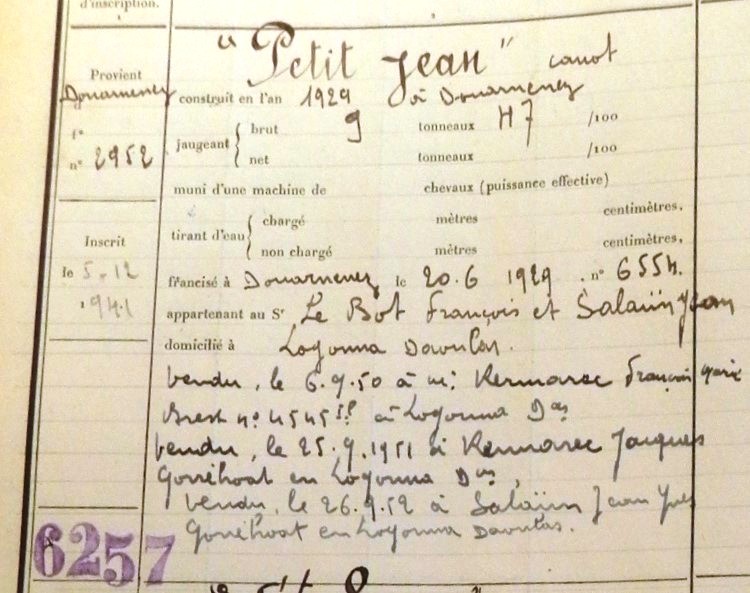 d'inscription.
"Petit Jean" canot
Provient
Douarnenez
construit en l'an 1929 à Douarnenez
jaugeant { brut 9 tonneaux 47 /100
fº
nº 2952
net tonneaux /100
muni d'une machine de chevaux (puissance effective)
tirant d'eau { chargé mètres centimètres.
non chargé mètres centimètres.
Inscrit
le 5-12
1941
francisé à Douarnenez le 20.6 1929 . nº 6554.
appartenant au Sr Le Bot François et Salaün Jean
domicilié à Logonna Daoulas.
vendu, le 6.9.50 à m: Kermarec François Marie
Brest nº 4545 à Logonna Das
vendu, le 25.9.1951 à Kermarec Jacques
Gorréhoat en Logonna Das,
vendu, le 26.9.52 à Salaün Jean Yves
Gorréhoat en Logonna Daoulas.
6257